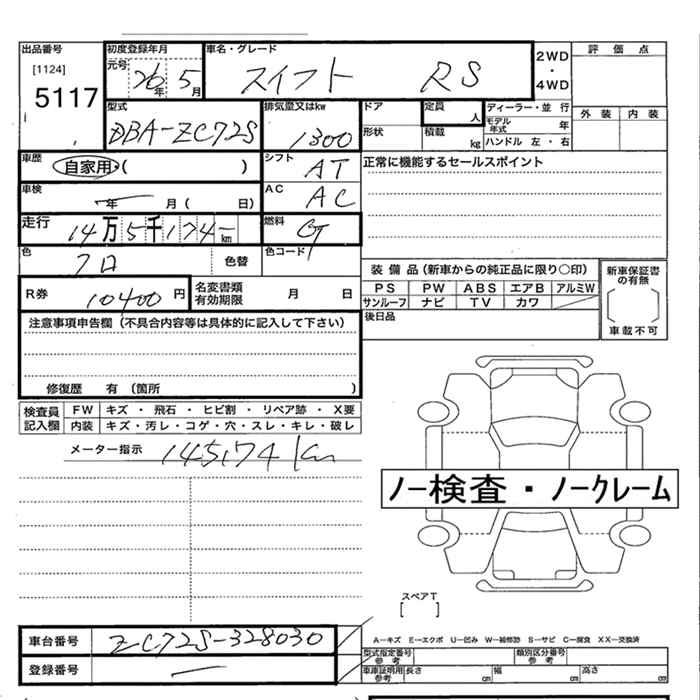 出品番号 初度登録年月 車名・グレード 2WD ・ 4WD 評価点
[1124] 元号 26年 5月 スイフト RS
5117
型式 排気量又はkw ドア 定員 人 ディーラー・並行 外装 内装
DBA-ZC72S 1300 形状 積載 kg モデル年式 年
ハンドル 左・右
車歴 自家用・( ) シフト AT 正常に機能するセールスポイント
車検 年 月( 日) AC AC
走行 14万5千174 km 燃料 G
色 クロ 色替 色コード
R券 10400円 名変書類有効期限 月 日
装備品(新車からの純正品に限り○印) 新車保証書の有無
PS PW ABS エアB アルミW
サンルーフ ナビ TV カワ
車載不可
後日品
注意事項申告欄(不具合内容等は具体的に記入して下さい)
修復歴 有(箇所 )
検査員記入欄 FW キズ・飛石・ヒビ割・リペア跡・X要
内装 キズ・汚レ・コゲ・穴・スレ・キレ・破レ
メーター指示 145174km
ノー検査・ノークレーム
スペアT
[ ]
車台番号 ZC72S-328030
登録番号 ー
A-キズ E-エクボ U-凹み W-補修跡 S-サビ C-腐食 XX-交換済
型式指定番号 参考 類別区分番号 参考
車庫証明用 参考 長さ cm 幅 cm 高さ cm